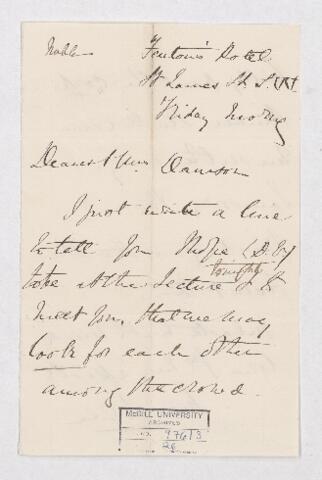 Noble
Fenton's Hotel
St James St. S.W.
Friday Morng
Dearest Mrs Dawson
I just write a line
to tell you I hope (D.V.)
tonight
to be at the Lecture &
meet you, that we may
look for each other
among the crowd.
McGILL UNIVERSITY
ARCHIVES
NO. 976/3
26